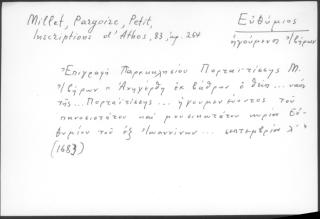 Millet, Pargoire, Petit,
Inscriptions d'Athos, 83, ἀρ. 264
Εὐθύμιος
ἡγούμενος Ἰβήρων
Ἐπιγραφὴ Παρεκκλησίου Πορταϊτίσσης Μ.
Ἰβήρων : Ἀνηγέρθη ἐκ βάθρων ὁ θεῖος... ναὸς
τῆς... Πορταϊτίσσης... ἡγουμενεύοντος τοῦ
πανοσιωτάτου καὶ μουσικωτάτου κυρίου Εὐ-
θυμίου τοῦ ἐξ Ἰωαννίνων... σεπτεμβρίῳ λ'
(1683)